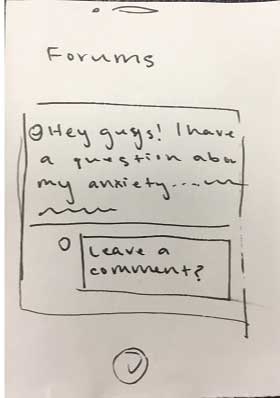 Forums
Hey guys! I have
a question abou
my anxiety...
Leave a
comment?